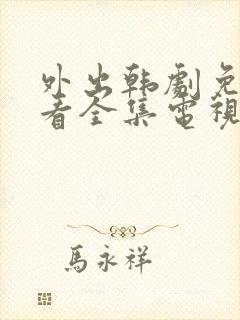 外出韩劇免
看全集電視
馬永祥